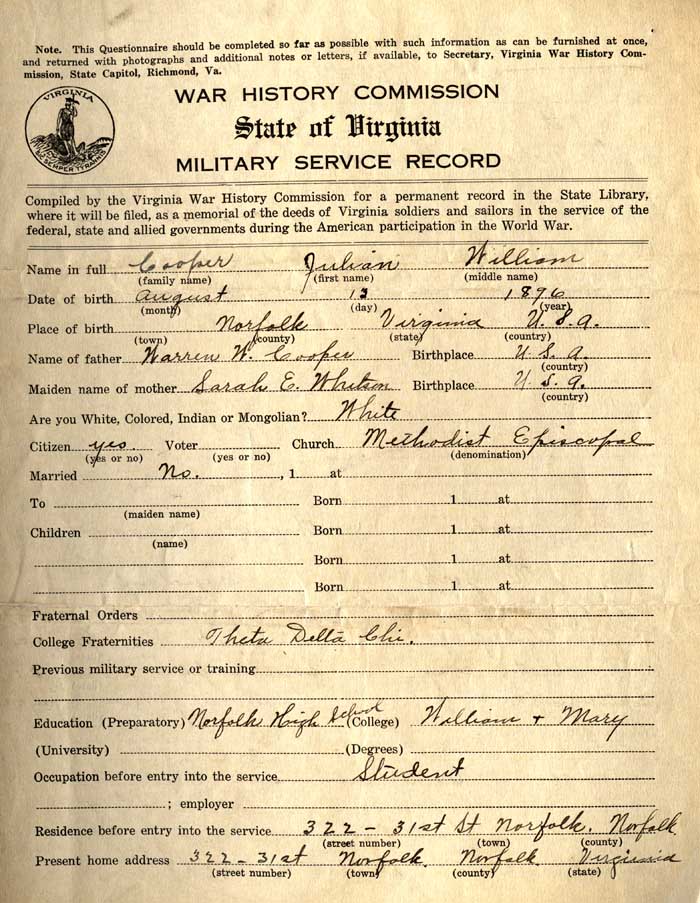 Note. This Questionnaire should be completed so far as possible with such information as can be furnished at once,
and returned with photographs and additional notes or letters, if available, to Secretary, Virginia War History Com-
mission, State Capitol, Richmond, Va.
VIRGINIA
SIC SEMPER TYRANNIS
WAR HISTORY COMMISSION
State of Virginia
MILITARY SERVICE RECORD
Compiled by the Virginia War History Commission for a permanent record in the State Library,
where it will be filed, as a memorial of the deeds of Virginia soldiers and sailors in the service of the
federal, state and allied governments during the American participation in the World War.
Name in full Cooper Julian William
(family name) (first name) (middle name)
Date of birth August 13 1896
(month) (day) (year)
Place of birth Norfolk Virginia U. S. A.
(town) (county) (state) (country)
Name of father Warren W. Cooper Birthplace U. S. A.
(country)
Maiden name of mother Sarah E. Whitson Birthplace U. S. A.
(country)
Are you White, Colored, Indian or Mongolian? White
Citizen yes. Voter Church Methodist Episcopal
(yes or no) (yes or no) (denomination)
Married No. , 1 at
To Born 1 at
(maiden name)
Children Born 1 at
(name)
Born 1 at
Born 1 at
Fraternal Orders
College Fraternities Theta Delta Chi.
Previous military service or training
Education (Preparatory) Norfolk High School (College) William + Mary
(University) (Degrees)
Occupation before entry into the service Student
; employer
Residence before entry into the service 322 - 31st St Norfolk. Norfolk
(street number) (town) (county)
Present home address 322 - 31st Norfolk Norfolk Virginia
(street number) (town) (county) (state)